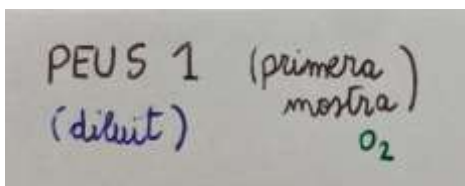 PEUS 1 (primera
mostra)
(diluit)
O2